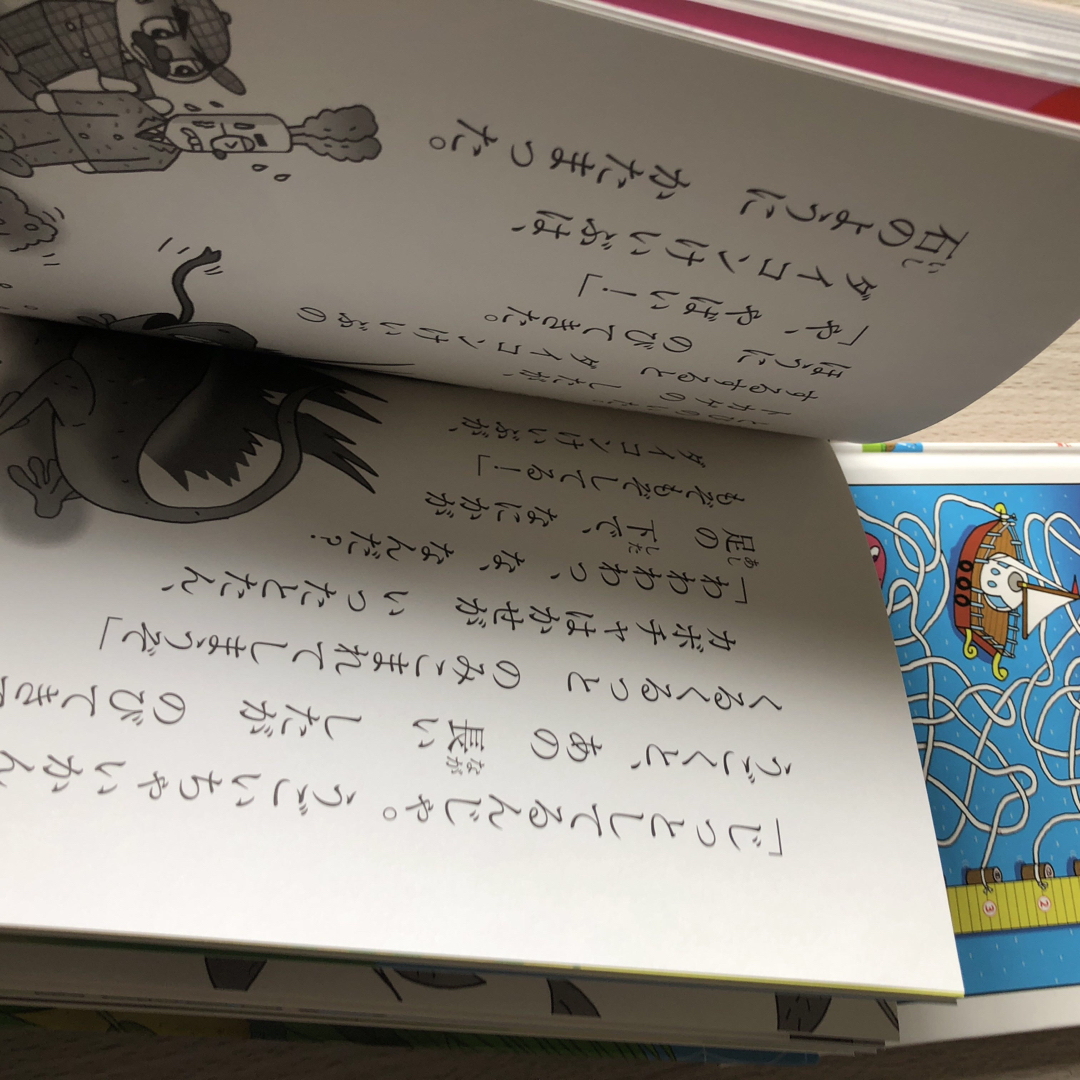 「じっとしてるんじゃ。 うごいちゃいかん
うごくと、あの 長い したが のびてきて
くるくるっと のみこまれてしまうぞ」
カボチャはかせが いったとたん、
「わわわっ、な、なんだ？
足の 下で、なにかが
もぞもぞしてる！」
ダイコンけいぶが、
トカゲの したが、
するすると ダイコンけいぶの
ほうに のびてきた。
「や、やばい！」
ダイコンけいぶは、
石のように かたまった。
2
3